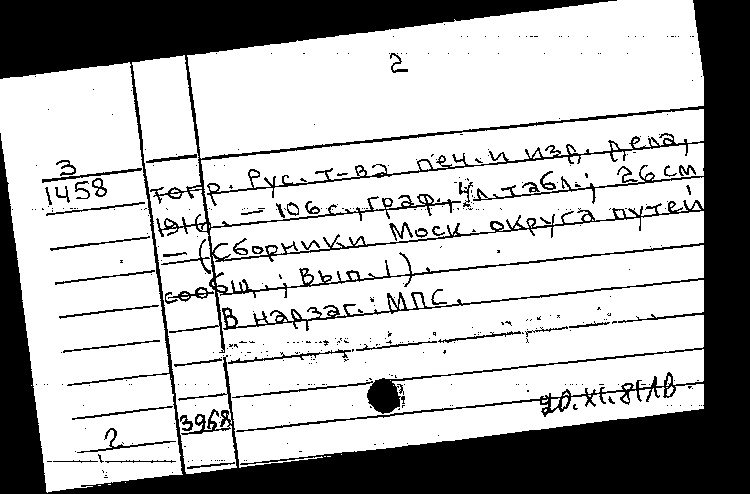 2
3
1458
тогр. Рус. т-ва печ. и изд. дела,
1916. — 106 с., граф., 4 л. табл.; 26 см.
— (Сборники Моск. округа путей
сообщ.; Вып. 1).
В надзаг.: МПС.
3968
2
20.XI.81 ЛВ